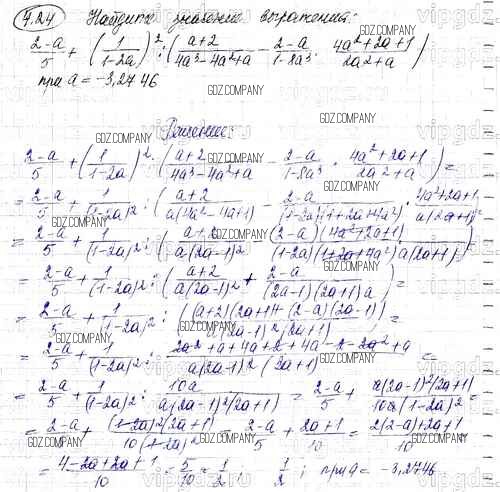 4.24 Найдите значение выражения:
(2-a)/5 + (1/(1-2a))² : ((a+2)/(4a³-4a²+a) - (2-a)/(1-8a³) · (4a²+2a+1)/(2a²+a))
при a = -3,2746
Решение:
(2-a)/5 + (1/(1-2a))² : ((a+2)/(4a³-4a²+a) - (2-a)/(1-8a³) · (4a²+2a+1)/(2a²+a)) =
= (2-a)/5 + 1/(1-2a)² : ((a+2)/(a(4a²-4a+1)) - (2-a)/((1-2a)(1+2a+4a²)) · (4a²+2a+1)/(a(2a+1))) =
= (2-a)/5 + 1/(1-2a)² : ((a+2)/(a(2a-1)²) - (2-a)(4a²+2a+1)/((1-2a)(1+2a+4a²)a(2a+1))) =
= (2-a)/5 + 1/(1-2a)² : ((a+2)/(a(2a-1)²) + (2-a)/((2a-1)(2a+1)a)) =
= (2-a)/5 + 1/(1-2a)² : (((a+2)(2a+1)+(2-a)(2a-1))/(a(2a-1)²(2a+1))) =
= (2-a)/5 + 1/(1-2a)² : (2a²+a+4a+2+4a-2-2a²+a)/(a(2a-1)²(2a+1)) =
= (2-a)/5 + 1/(1-2a)² : 10a/(a(2a-1)²(2a+1)) = (2-a)/5 + a(2a-1)²(2a+1)/(10a(1-2a)²) =
= (2-a)/5 + (1-2a)²(2a+1)/(10(1-2a)²) = (2-a)/5 + (2a+1)/10 = (2(2-a)+2a+1)/10 =
= (4-2a+2a+1)/10 = 5/10 = 1/2 ; 1/2 ; при a = -3,2746
GDZ.COMPANY
vipgdz